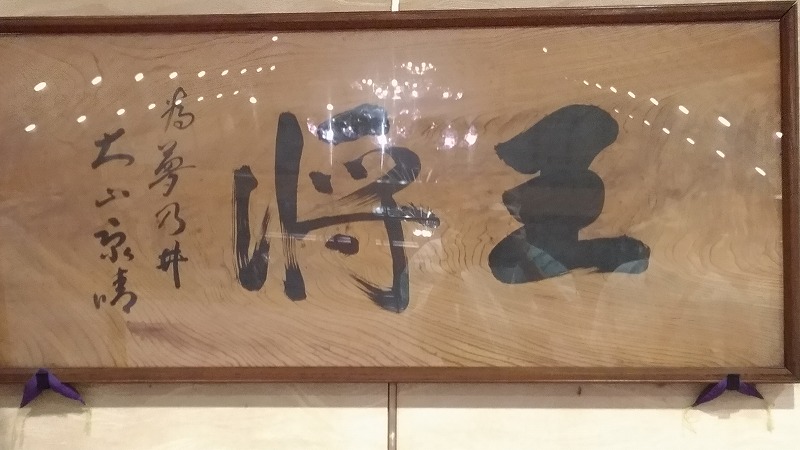 王将
為夢乃井
大山康晴